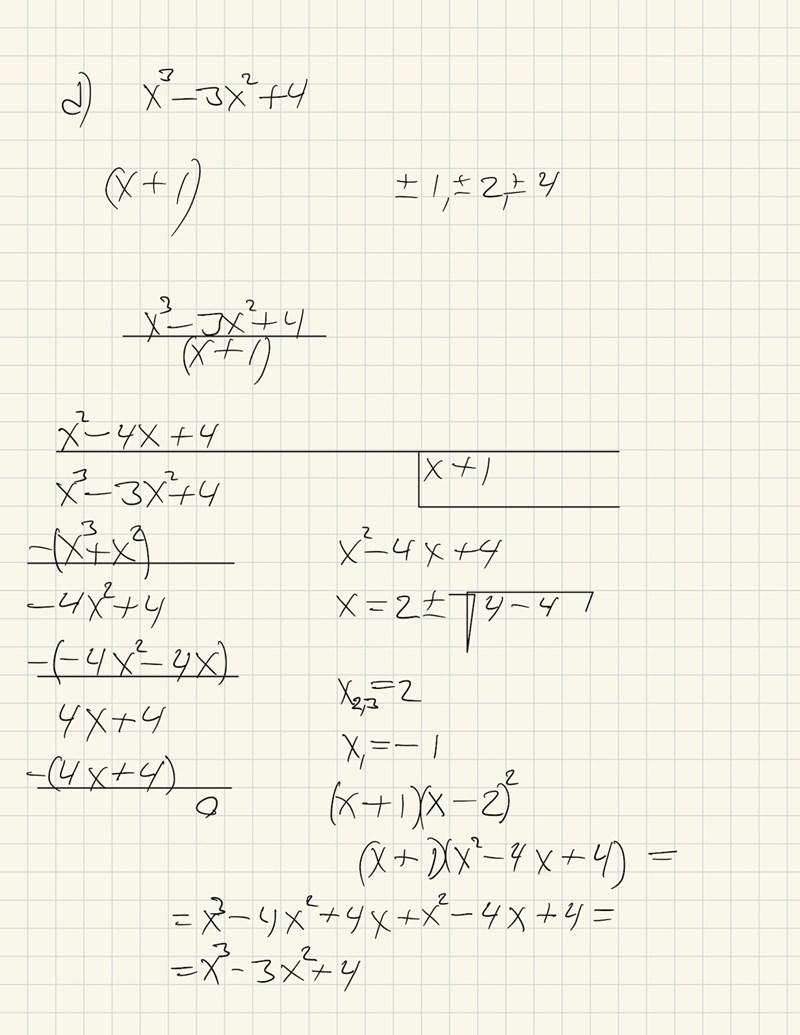 d) x³-3x²+4
(x+1) ±1,±2,±4
x³-3x²+4
(x+1)
x²-4x+4
x³-3x²+4 x+1
-(x³+x²)
-4x²+4
-(-4x²-4x)
4x+4
-(4x+4)
0
x²-4x+4
x=2±√4-4
x₂,₃=2
x₁=-1
(x+1)(x-2)²
(x+1)(x²-4x+4)=
=x³-4x²+4x+x²-4x+4=
=x³-3x²+4